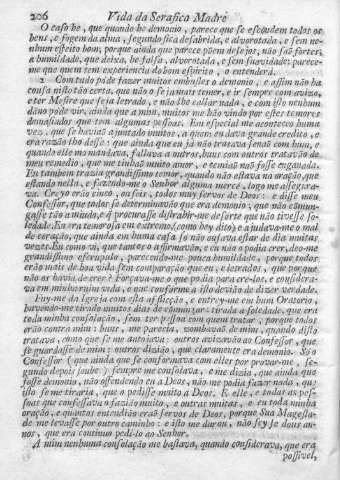 206 Vida da Serafica Madre
O caso he, que quando he demonio, parece que se escondem todos os
bens, e fogem da alma, segundo fica desabrida, e alvorotada, e sem ne-
nhum effeito bom, porque ainda que parece põem desejos, não são fortes,
a humildade, que deixa, he falsa, alvorotada, e sem suavidade; parece-
me que quem tem experiencia do bom espirito, o entenderá.
2 Com tudo póde fazer muitos embustes o demonio, e assim não ha
cousa nisto tão certa, que não o seja mais temer, e ir sempre com aviso,
e ter Mestre que seja letrado, e não lhe callar nada, e com isto nenhum
dano póde vir, ainda que a mim, muitos me hão vindo por estes temores
demasiados que tem algumas pessoas. Em especial me aconteceo huma
vez, que se havião ajuntado muitos, a quem eu dava grande credito, e
era razão lho désse: que ainda que eu já não tratava senão com hum, e
quando elle mo mandava, fallava a outros, huns com outros tratavão do
meu remedio, que me tinhão muito amor, e temião não fosse enganada.
Eu tambem trazia grandissimo temor, quando não estava na oração, que
estando nella, e fazendo-me o Senhor alguma mercê, logo me assegura-
va. Creyo erão cinco, ou seis, todos muy servos de Deos: e disse meu
Confessor, que todos se determinavão que era demonio, que não cõmun-
gasse tão a miudo, e q̃ procurasse distrahir-me de sorte que não tivesse so-
ledade. Eu era temerosa em extremo, (como hey dito) e ajudava-me o mal
de coração, que ainda em huma casa só não ousava estar de dia muitas
vezes. Eu como vi, que tantos o affirmavão, e eu não o podia crer, deo-me
grandissimo escrupulo, parecendo-me pouca humildade, porque todos
erão mais de boa vida sem comparação que eu, e letrados, que porque
não os havia de crer? Forçava-me o que podia para crelos, e considera-
va em minha ruim vida, e que conforme a isso devião de dizer verdade.
Fuy-me da Igreja com esta afflicção, e entrey-me em hum Oratorio,
havendo-me tirado muitos dias de cõmungar: tirada a soledade, que era
toda minha consolação, sem ter pessoa com quem tratar, porque todos
erão contra mim: huns, me parecia, zombavão de mim, quando disso
tratava, como que se me antojava: outros avisavão ao Confessor, que
se guardasse de mim: outros dizião, que claramente era demonio. Só o
Confessor (que ainda que se conformava com elles por provar-me, se-
gundo depois soube) sempre me consolava, e me dizia, que ainda que
fosse demonio, não offendendo eu a Deos, não me podia fazer nada, que
isso se me tiraria, que o pedisse muito a Deos. E elle, e todas as pes-
soas que confessava o fazião muito, e outras muitas, e eu toda minha
oração, e quantos entendião erão servos de Deos, porque Sua Magesta-
de me levasse por outro caminho: e isto me durou, não sey se dous an-
nos, que era continuo pedi-lo ao Senhor.
A mim nenhuma consolação me bastava, quando considerava, que era
possivel,